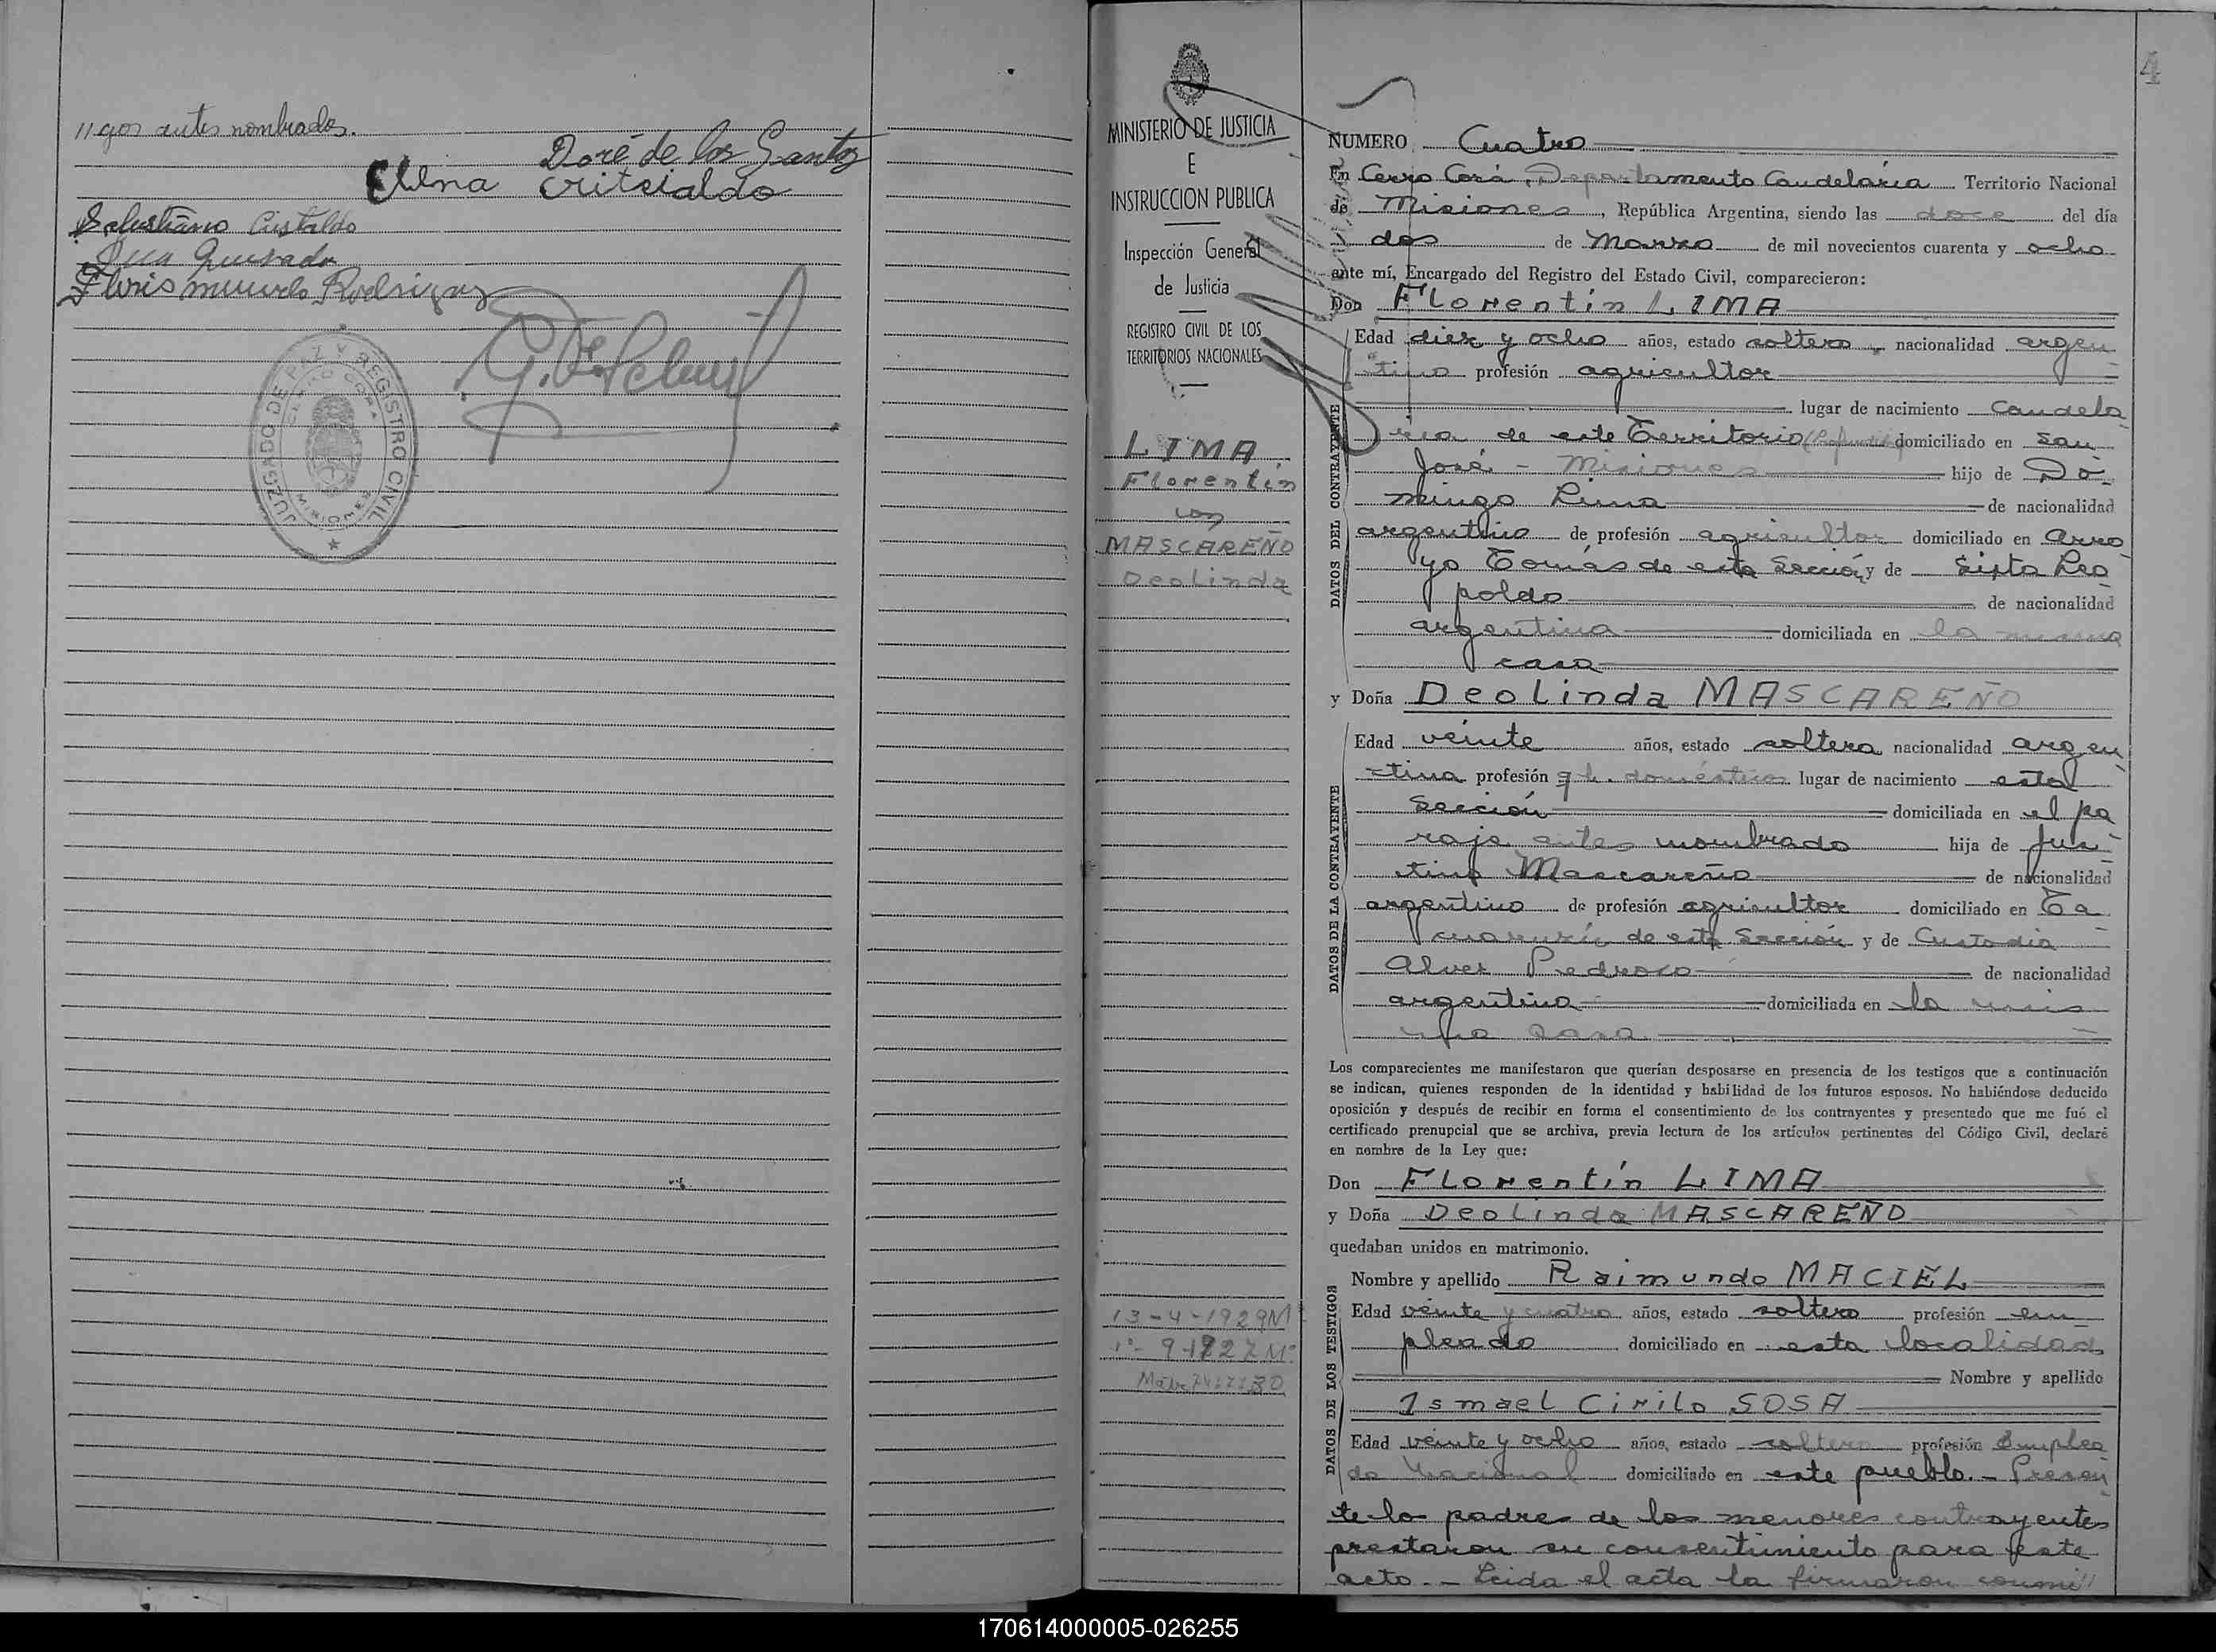 //gos antes nombrados.
Doré de los Santos
Elena Critsialdo
Salustiano Cristaldo
Quesada
Rodriguez
JUZGADO DE PAZ Y REGISTRO CIVIL
CERRO CORA
MISIONES
4
MINISTERIO DE JUSTICIA
E
INSTRUCCION PUBLICA
Inspección General
de Justicia
REGISTRO CIVIL DE LOS
TERRITORIOS NACIONALES
LIMA
Florentín
con
MASCAREÑO
Deolinda
13-4-1929 M
NUMERO Cuatro
En Cerro Corá, Departamento Candelaria Territorio Nacional
de Misiones, República Argentina, siendo las doce del día
dos de Marzo de mil novecientos cuarenta y ocho
ante mí, Encargado del Registro del Estado Civil, comparecieron:
Don Florentín LIMA
DATOS DEL CONTRAYENTE
Edad diez y ocho años, estado soltero, nacionalidad argen
tino profesión agricultor
lugar de nacimiento Candela
ria de este Territorio domiciliado en San
José - Misiones hijo de Do
mingo Lima de nacionalidad
argentino de profesión agricultor domiciliado en Arro
yo Tomás de esta Sección y de Sixta Leo
poldo de nacionalidad
argentina domiciliada en la misma
casa
y Doña Deolinda MASCAREÑO
DATOS DE LA CONTRAYENTE
Edad veinte años, estado soltera nacionalidad argen
tina profesión q h. domésticos lugar de nacimiento esta
Sección domiciliada en el pa
raje antes nombrado hija de Jus
tino Mascareño de nacionalidad
argentino de profesión agricultor domiciliado en Ta
de esta Sección y de Custodia
Alvez Pedrozo de nacionalidad
argentina domiciliada en la mis
ma casa
Los comparecientes me manifestaron que querían desposarse en presencia de los testigos que a continuación
se indican, quienes responden de la identidad y habilidad de los futuros esposos. No habiéndose deducido
oposición y después de recibir en forma el consentimiento de los contrayentes y presentado que me fué el
certificado prenupcial que se archiva, previa lectura de los artículos pertinentes del Código Civil, declaré
en nombre de la Ley que:
Don Florentín LIMA
y Doña Deolinda MASCAREÑO
quedaban unidos en matrimonio.
DATOS DE LOS TESTIGOS
Nombre y apellido Raimundo MACIEL
Edad veinte y cuatro años, estado soltero profesión em
pleado domiciliado en esta localidad
Nombre y apellido
Ismael Cirilo SOSA
Edad veinte y ocho años, estado soltero profesión Emplea
do Nacional domiciliado en este pueblo. - Presen
te los padres de los menores contrayentes
prestaron su consentimiento para este
acto. - Leida el acta la firmaron conmi//
170614000005-026255